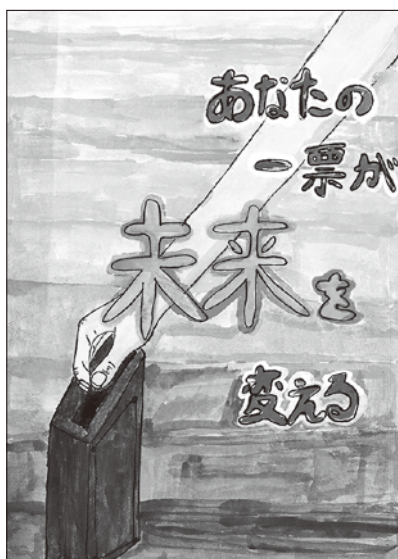 あなたの
一票が
未来を
変える